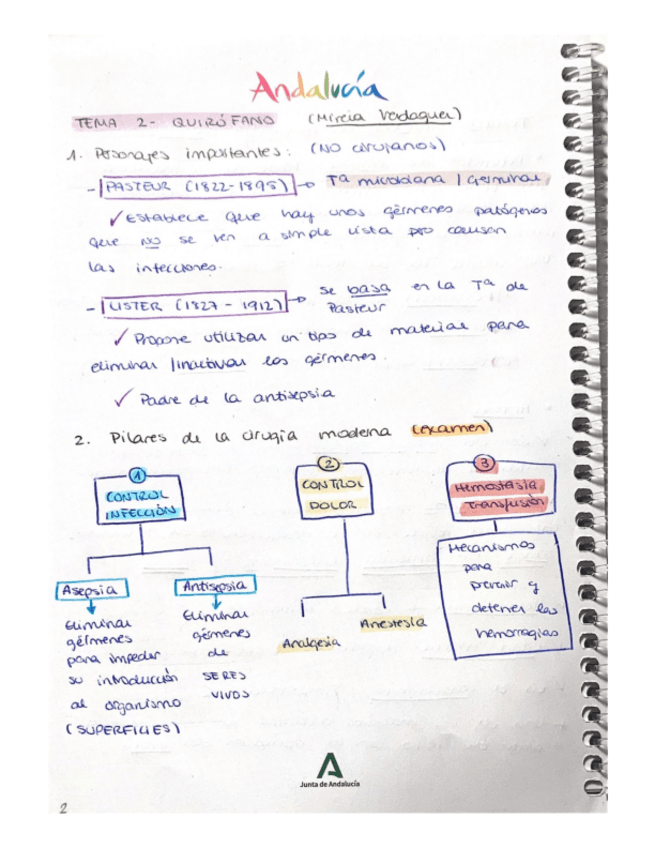 Andalucía
TEMA 2- QUIRÓFANO (Mireia Verdaguer)
1. Personajes importantes: (NO cirujanos)
- PASTEUR (1822-1895) → Tª microbiana / germinal
✓ Establece que hay unos gérmenes patógenos
que no se ven a simple vista pro causan
las infecciones.
- LISTER (1827 - 1912) → se basa en la Tª de
Pasteur
✓ Propone utilizar un tipo de material para
eliminar / inactivar los gérmenes.
✓ Padre de la antisepsia
2. Pilares de la cirugía moderna (examen)
1
CONTROL
INFECCIÓN
Asepsia
Eliminar
gérmenes
para impedir
su introducción
al organismo
(SUPERFICIES)
Antisepsia
Eliminar
gérmenes
de
SERES
VIVOS
2
CONTROL
DOLOR
Analgesia
Anestesia
3
Hemostasia
Transfusión
Mecanismos
para
prevenir y
detener las
hemorragias
Junta de Andalucía
2